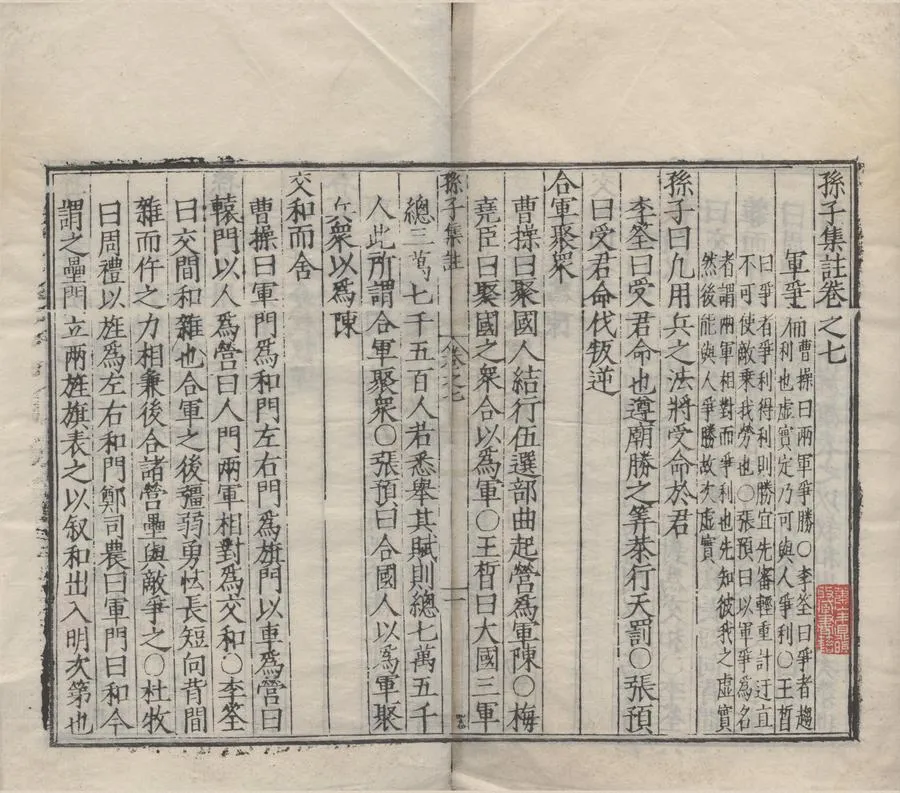 孫子集註卷之七
軍爭
曹操曰兩軍爭勝○李筌曰爭者趨
利也虛實定乃可與人爭利○王晳
曰爭者爭利得利則勝宜先審輕重計迂直
不可使敵乘我勞也○張預曰以軍爭爲名
者謂兩軍相對而爭利也先知彼我之虛實
然後能與人爭勝故次虛實
孫子曰凡用兵之法將受命於君
李筌曰受君命也遵廟勝之筭恭行天罰○張預
曰受君命伐叛逆
合軍聚衆
曹操曰聚國人結行伍選部曲起營爲軍陳○梅
堯臣曰聚國之衆合以爲軍○王晳曰大國三軍
孫子集註 卷之七 一
總三萬七千五百人若悉舉其賦則總七萬五千
人此所謂合軍聚衆○張預曰合國人以爲軍聚
兵衆以爲陳
交和而舍
曹操曰軍門爲和門左右門爲旗門以車爲營曰
轅門以人爲營曰人門兩軍相對爲交和○李筌
曰交間和雜也合軍之後彊弱勇怯長短向背間
雜而仵之力相兼後合諸營壘與敵爭之○杜牧
曰周禮以旌爲左右和門鄭司農曰軍門曰和今
謂之壘門立兩旌旗表之以叙和出入明次第也